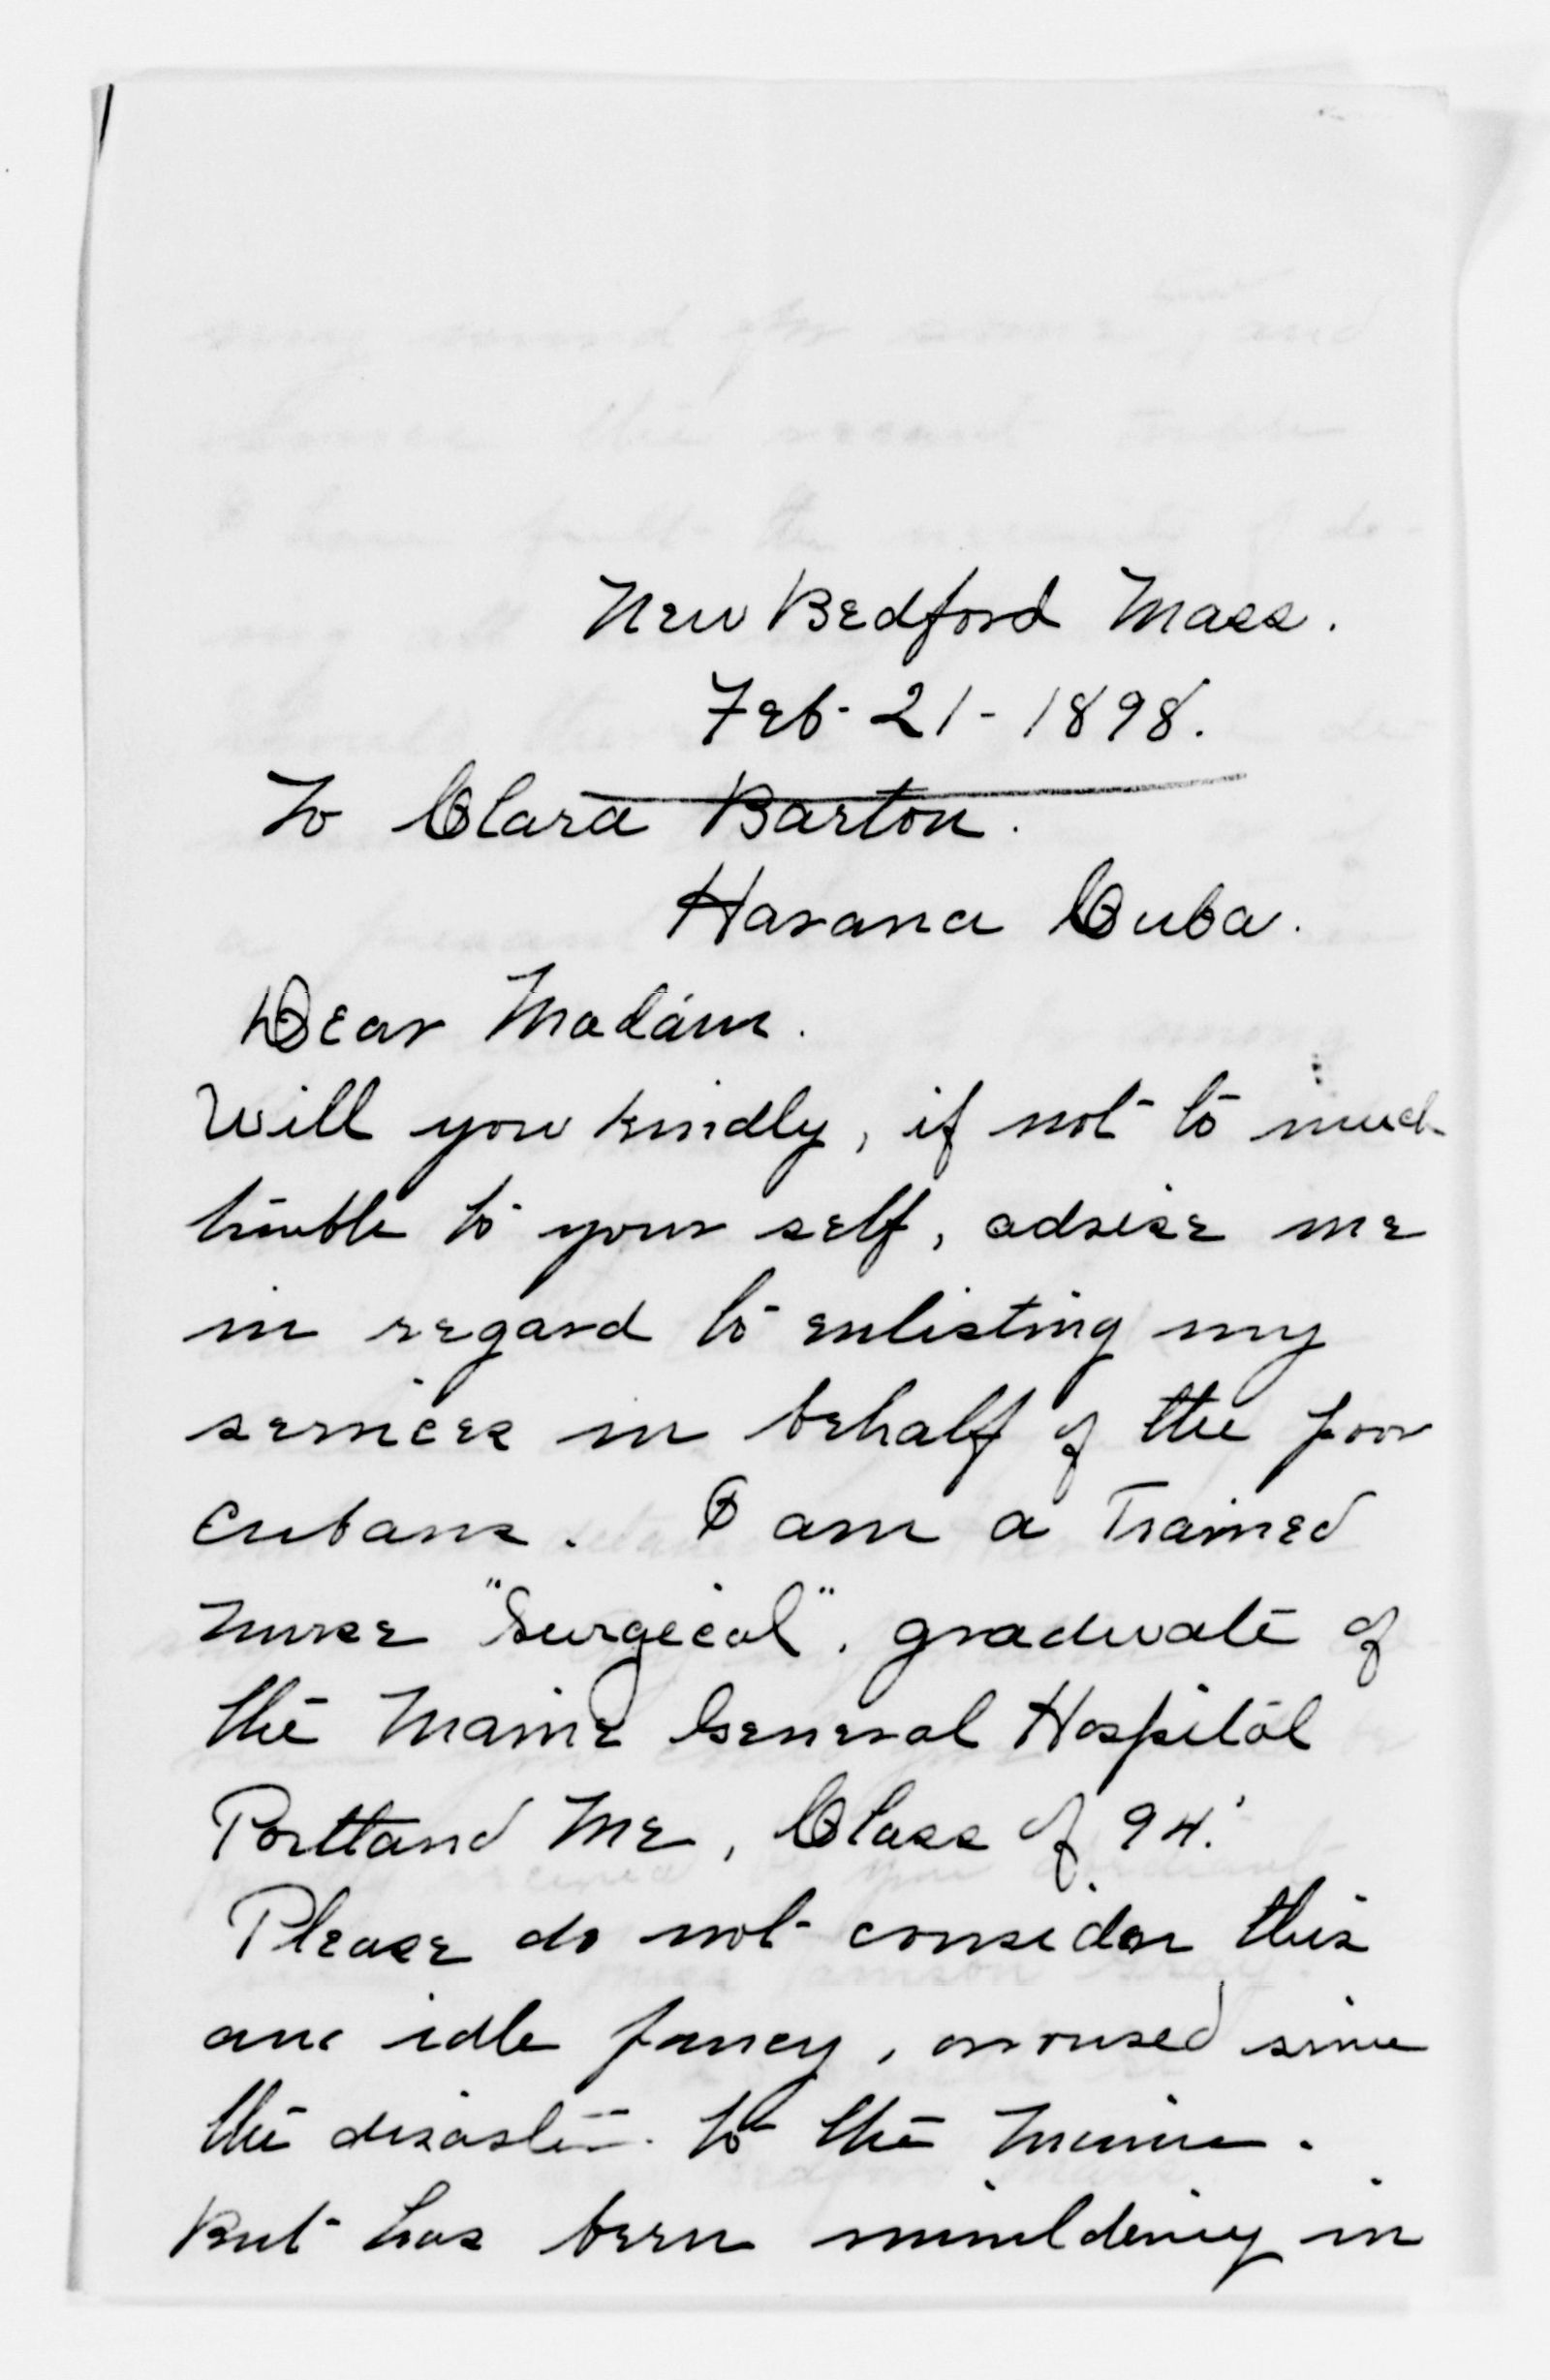 New Bedford Mass.
Feb- 21- 1898.
To Clara Barton.
Havana Cuba.
Dear Madam.
Will you kindly, if not to much
trouble to your self, advise me
in regard to enlisting my
services in behalf of the poor
cubans. I am a Trained
nurse "Surgical". graduate of
the Maine General Hospital
Portland Me, Class of 94'.
Please do not consider this
ane idle fancy, aroused since
the disaster to the Maine.
But has been in